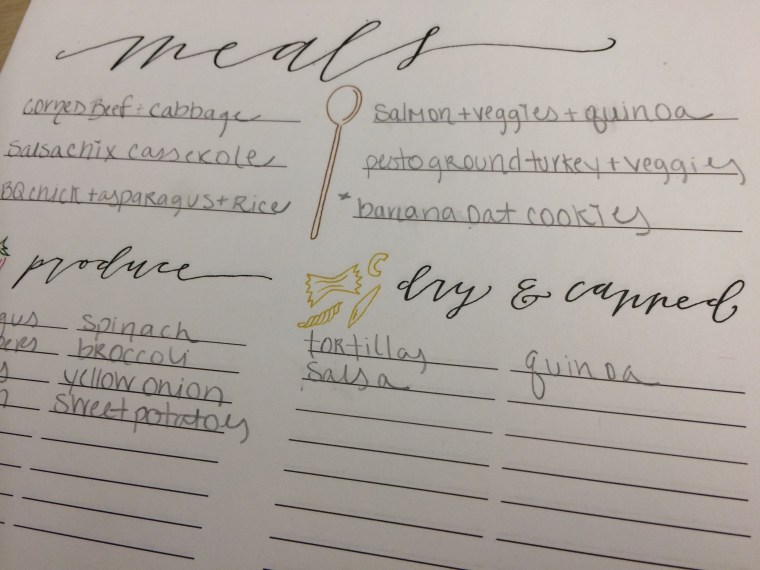 meals
corned Beef + cabbage
salmon + veggies + quinoa
salsa chix casserole
pesto ground turkey + veggies
BQ chick + asparagus + Rice
* banana oat cookies
produce
dry & canned
gus
spinach
broccoli
yellow onion
sweet potatoes
tortillas
quinoa
salsa